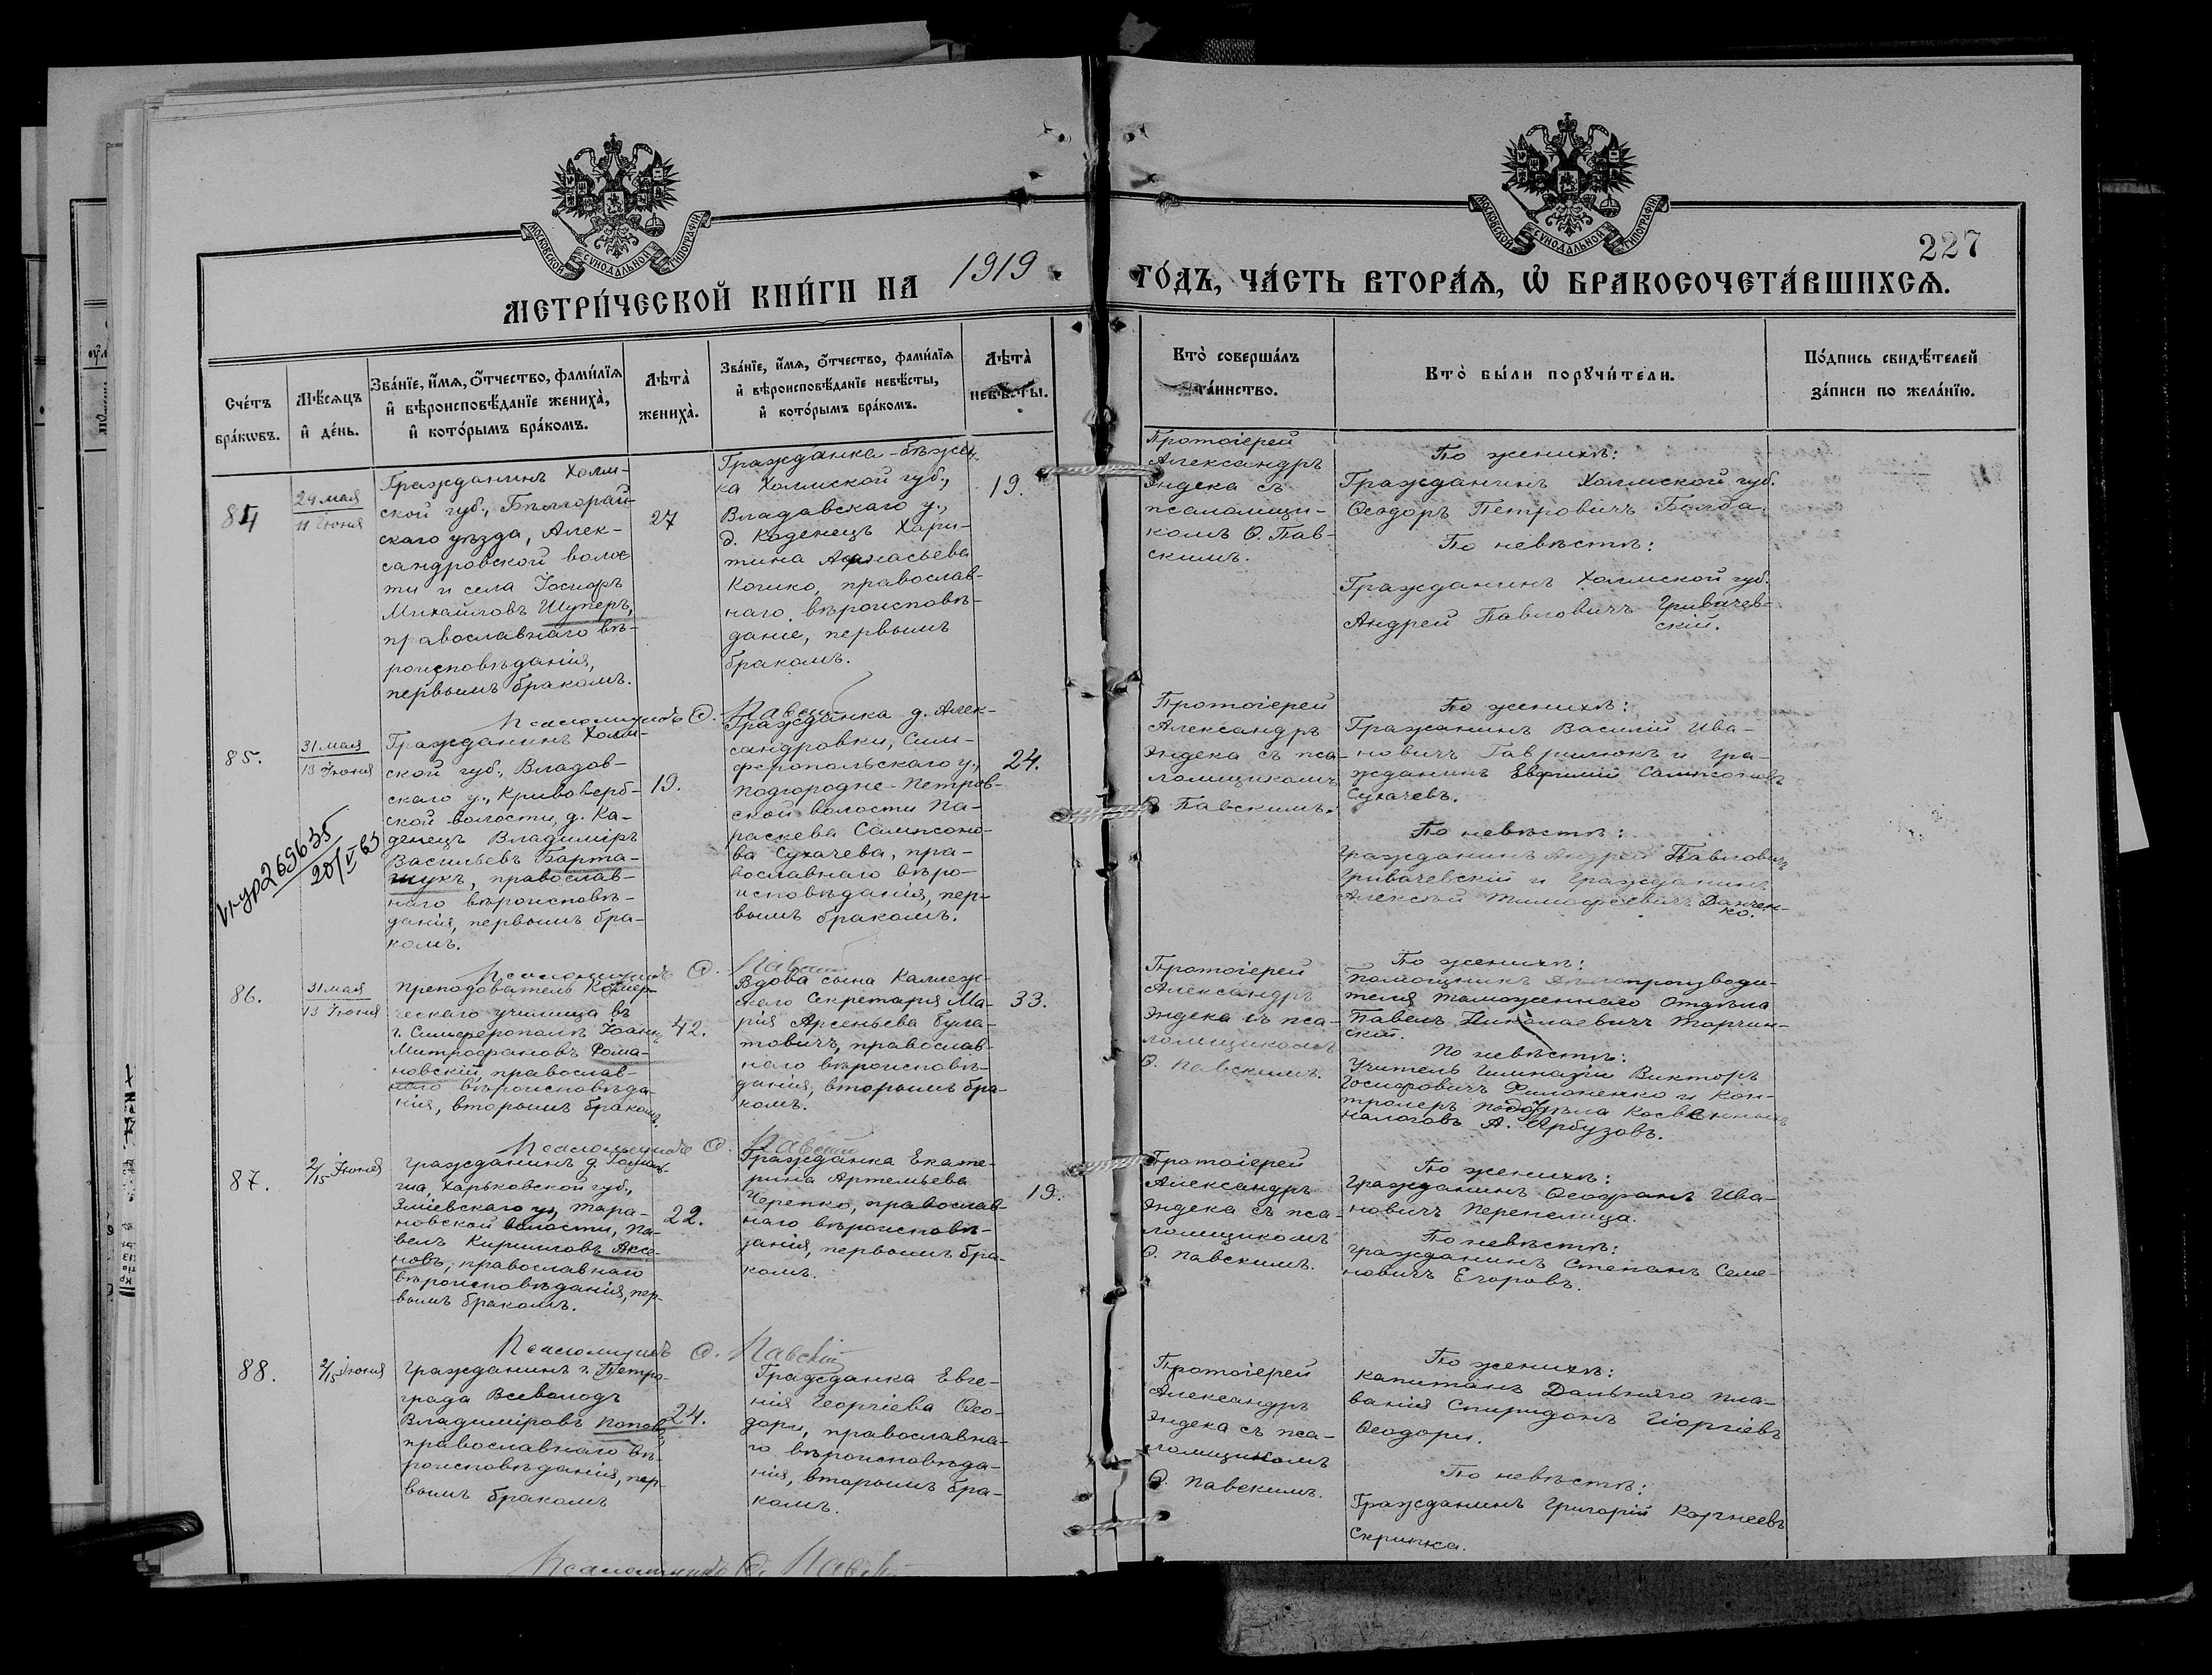 МОСКОВСКОЙ СУНОДАЛЬНОЙ ТИПОГРАФІИ
МОСКОВСКОЙ СУНОДАЛЬНОЙ ТИПОГРАФІИ
227
МЕТРИ́ЧЕСКОЙ КНИ́ГИ НА 1919 ГО́ДЪ, ЧА́СТЬ ВТОРА́Ѧ, Ѡ҆ БРАКОСОЧЕТА́ВШИХСѦ.
Сче́тъ
бра́кѡвъ.
Мѣ́сѧцъ
и҆ де́нь.
Зва́нїе, и҆́мѧ, о҆́тчество, фами́лїѧ
и҆ вѣроисповѣ́данїе жениха̀,
и҆ кото́рымъ бра́комъ.
Лѣта̀
жениха̀.
Зва́нїе, и҆́мѧ, о҆́тчество, фами́лїѧ
и҆ вѣроисповѣ́данїе невѣ́сты,
и҆ кото́рымъ бра́комъ.
Лѣта̀
невѣ́сты.
Кто̀ соверша́лъ
та́инство.
Кто̀ бы́ли порꙋчи́тели.
По́дпись свидѣ́телей
за́писи по жела́нїю.
84
24 мая
11 Іюня
Гражданинъ Холм-
ской губ., Бѣлгорай-
скаго уѣзда, Алек-
сандровской волос
ти и села Іосифъ
Михайловъ Шуперъ,
православнаго вѣ-
роисповѣданія,
первымъ бракомъ.
27
Гражданка-бѣжен
ка Холмской губ.,
Владавскаго у.,
д. Каденецъ Хари-
тина Афанасьева
Кочико, православ-
наго вѣроисповѣ-
даніе, первымъ
бракомъ.
19.
Протоіерей
Александръ
Эндека съ
псаломщи-
комъ Ѳ. Пав-
скимъ.
По женихѣ:
Гражданинъ Холмской губ.
Ѳеодоръ Петровичъ Балба.
По невѣстѣ:
Гражданинъ Холмской губ.
Андрей Павловичъ Гривачев-
скій.
Псаломщикъ Ѳ. Павскій
85.
31 мая
13 Іюня
Гражданинъ Холм-
ской губ., Владов-
скаго у., Кривоверб-
ской волости, д. Ка-
денецъ Владиміръ
Васильевъ Барта-
шукъ, православ-
наго вѣроисповѣ-
данія, первымъ бра-
комъ.
19.
Гражданка д. Алек-
сандровки, Сим-
феропольскаго у.,
Подгородне-Петров-
ской волости Па-
раскева Сампсоно-
ва Сухачева, пра-
вославнаго вѣро-
исповѣданія, пер-
вымъ бракомъ.
24.
Протоіерей
Александръ
Эндека съ пса-
ломщикомъ
Ѳ. Павскимъ.
По женихѣ:
Гражанинъ Василій Ива-
новичъ Гаврилюкъ и гра-
жданинъ Евфимій Сампсоновъ
Сухачевъ.
По невѣстѣ:
Гражданинъ Андрей Павловичъ
Гривачевскій и Гражданинъ
Алексѣй Тимофеевичъ Данчен-
ко.
269635
20/V 63
Псаломщикъ Ѳ. Павскій
86.
31 мая
13 Іюня
Преподователь Комер-
ческаго училища въ
г. Симферополѣ Іоаннъ
Митрофановъ Рома-
новскій, православ-
наго вѣроисповѣда-
нія, вторымъ бракомъ.
42.
Вдова сына Коллеж-
скаго Секретаря Ма-
рія Арсеньева Була-
товичъ, православ-
наго вѣроисповѣ-
данія, вторымъ бра-
комъ.
33.
Протоіерей
Александръ
Эндека съ пса-
ломщикомъ
Ѳ. Павскимъ.
По женихѣ:
Помощникъ Дѣлопроизводи-
теля Таможеннаго Отдѣла
Павелъ Николаевичъ Торчин-
скій.
По невѣстѣ:
Учитель Гимназіи Викторъ
Іосифовичъ Филоненко и Кон-
тролеръ подотдѣла Косвенныхъ
налоговъ А. Арбузовъ.
Псаломщикъ Ѳ. Павскій
87.
2/15 Іюня
Гражданинъ д.
Харьковской губ.,
Зміевскаго у., Тара-
новской волости, Па-
велъ Кирилловъ Аксе-
новъ, православнаго
вѣроисповѣданія, пер-
вымъ бракомъ.
22.
Гражданка Екате-
рина Артемьева
Черепко, православ-
наго вѣроисповѣ-
данія, первымъ бра-
комъ.
19.
Протоіерей
Александръ
Эндека съ пса-
ломщикомъ
Ѳ. Павскимъ.
По женихѣ:
Гражданинъ Ѳеофанъ Ива-
новичъ Перепелица.
По невѣстѣ:
Гражданинъ Степанъ Семе-
новичъ Егоровъ.
Псаломщикъ Ѳ. Павскій
88.
2/15 Іюня
Гражданинъ г. Петро-
града Всеволодъ
Владиміровъ Поповъ,
православнаго вѣ-
роисповѣданія, пер-
вымъ бракомъ
24.
Гражданка Евге-
нія Георгіева Ѳео-
дори, православна-
го вѣроисповѣда-
нія, вторымъ бра-
комъ.
Протоіерей
Александръ
Эндека съ пса-
ломщикомъ
Ѳ. Павскимъ.
По женихѣ:
Капитанъ Дальняго пла-
ванія Спиридонъ Гіоргіевъ
Ѳеодори.
По невѣстѣ:
Гражданинъ Григорій Корнеевъ
Скрипка.
Псаломщикъ Ѳ. Павскій